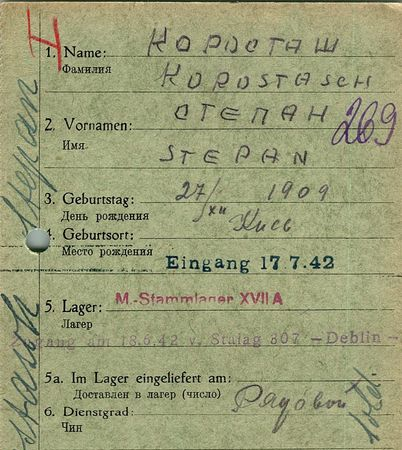 4
1. Name: КОРОСТАШ
Фамилия
KOROSTASCH
СТЕПАН
2. Vornamen:
269
Имя
STEPAN
3. Geburtstag: 27/XII 1909
День рождения
4. Geburtsort: Киев
Место рождения
Eingang 17.7.42
5. Lager: M.-Stammlager XVII A
Лагер
Zugang am 18.6.42 v. Stalag 307 – Deblin –
5a. Im Lager eingeliefert am:
Доставлен в лагер (число)
6. Dienstgrad: Рядовой
Чин
Stepan